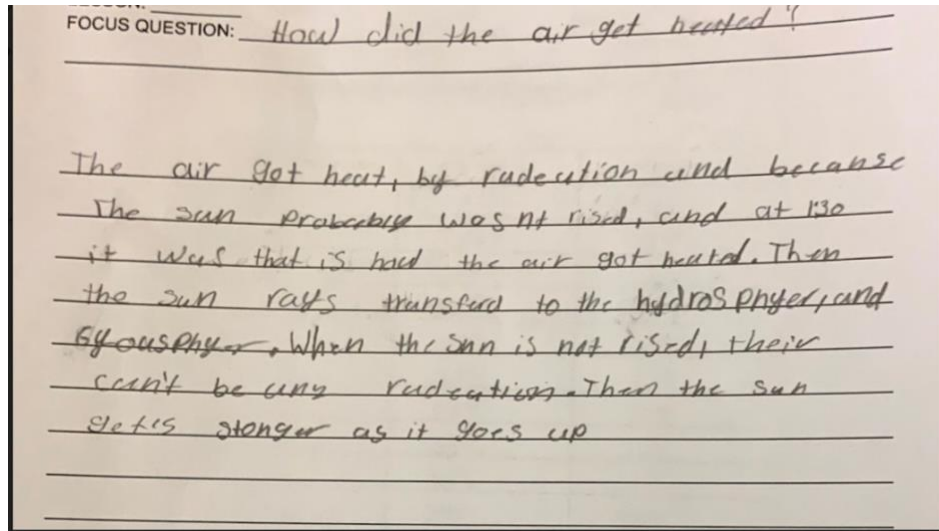 FOCUS QUESTION: How did the air get heated?
The air got heat, by radeution and because
The sun probabbly wasnt rised, and at 1:30
it was that is how the air got heated. Then
the sun rays transferd to the hydrosphyer, and
When the sun is not rised, their
can't be any radeution. Then the sun
stonger as it goes up